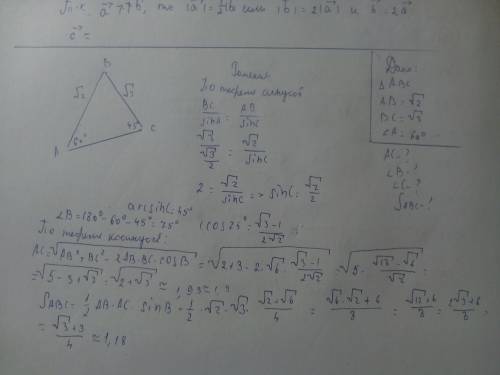 Т.к. a⃗ ↑↑ b⃗, то |a⃗| = ½|b⃗| или |b⃗| = 2|a⃗| и b⃗ = 2a⃗
c⃗ =
B
√2
√3
60°
45°
A
C
Решение
По теореме синусов
BC/sinA = AB/sinC
√3/(√3/2) = √2/sinC
2 = √2/sinC => sinC = √2/2
Дано:
△ABC
AB = √2
BC = √3
∠A = 60°
AC - ?
∠B - ?
∠C - ?
S△ABC - ?
arcsinC = 45°
∠B = 180° - 60° - 45° = 75°
(cos75° = (√3-1)/(2√2)
По теореме косинусов:
AC = √(AB² + BC² - 2AB·BC·cosB) = √(2+3-2·√6·(√3-1)/(2√2)) = √(5 - (√18-√6)/√2) =
= √(5-3+√3) = √(2+√3) ≈ 1,93 ≈ 1,9
SABC = 1/2 AB·AC·sinB = 1/2·√2·√3·(√2+√6)/4 = (√6·√2+6)/8 = (√12+6)/8 = (2√3+6)/8
= (√3+3)/4 ≈ 1,18